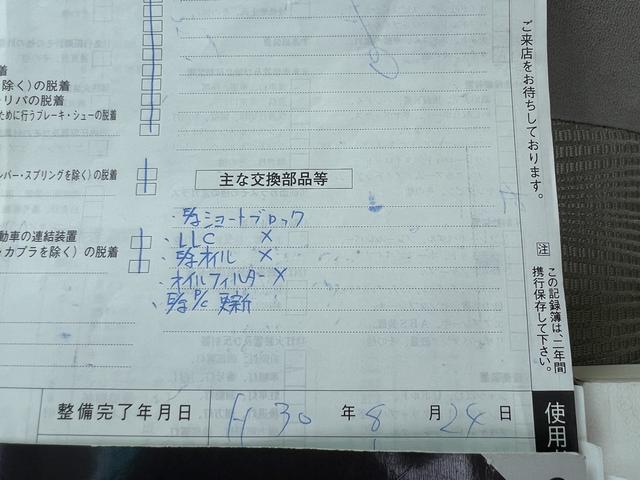 ご来店をお待ちしております。
除く)の脱着
リパの脱着
ために行うブレーキ・シューの脱着
ンパー・スプリングを除く)の脱着
動車の連結装置
・カプラを除く)の脱着
主な交換部品等
・E/gショートブロック
・LLC ×
・E/gオイル ×
・オイルフィルター×
・E/g P/C 更新
注 この記録簿は、二年間
携行保存して下さい。
整備完了年月日 H30 年 8 月 24 日
使用